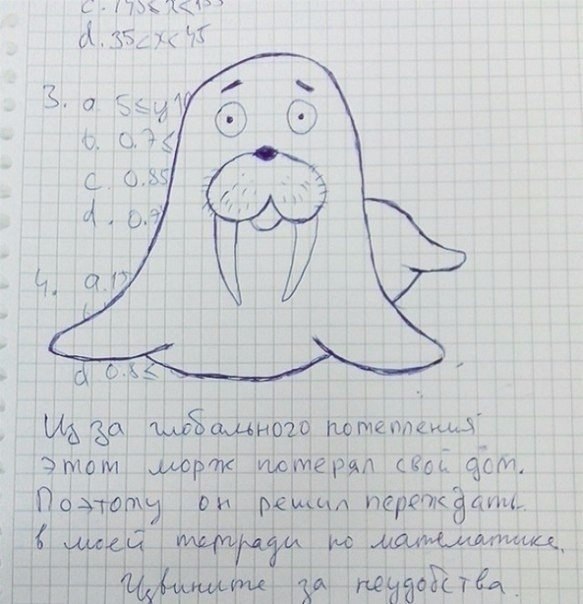 c. 145≤x≤155
d. 35<x<45
3. a. 5≤y
b. 0.7≤
c. 0.85
d. 0.7
4. a. 1
d 0.8≤
Из за глобального потепления
этот морж потерял свой дом.
Поэтому он решил переждать
в моей тетради по математике.
Извините за неудобства.